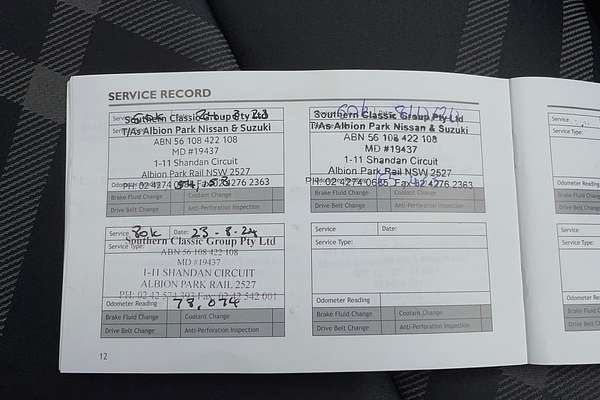 SERVICE RECORD
Southern Classic Group Pty Ltd
T/As Albion Park Nissan & Suzuki
ABN 56 108 422 108
MD #19437
1-11 Shandan Circuit
Albion Park Rail NSW 2527
PH: 02 4274 Fax 02 4276 2363
Brake Fluid Change Coolant Change
Drive Belt Change Anti-Perforation Inspection
60k
Southern Classic Group Pty Ltd
T/As Albion Park Nissan & Suzuki
ABN 56 108 422 108
MD #19437
1-11 Shandan Circuit
Albion Park Rail NSW 2527
PH: 02 4274 Fax 02 4276 2363
Brake Fluid Change Coolant Change
Drive Belt Change Anti-Perforation Inspection
Service 80k Date: 23-8-24
Service Type:
Southern Classic Group Pty Ltd
ABN 56 108 422 108
MD #19437
1-11 SHANDAN CIRCUIT
ALBION PARK RAIL 2527
PH: 02 42 Fax: 02 42 542 001
Odometer Reading 78,094
Brake Fluid Change Coolant Change
Drive Belt Change Anti-Perforation Inspection
Service Date:
Service Type:
Odometer Reading
Brake Fluid Change Coolant Change
Drive Belt Change Anti-Perforation Inspection
12
Service
Service Type:
Odometer Reading
Brake Fluid Change
Drive Belt Change
Service
Service Type:
Odometer Reading
Brake Fluid C
Drive Belt Ch